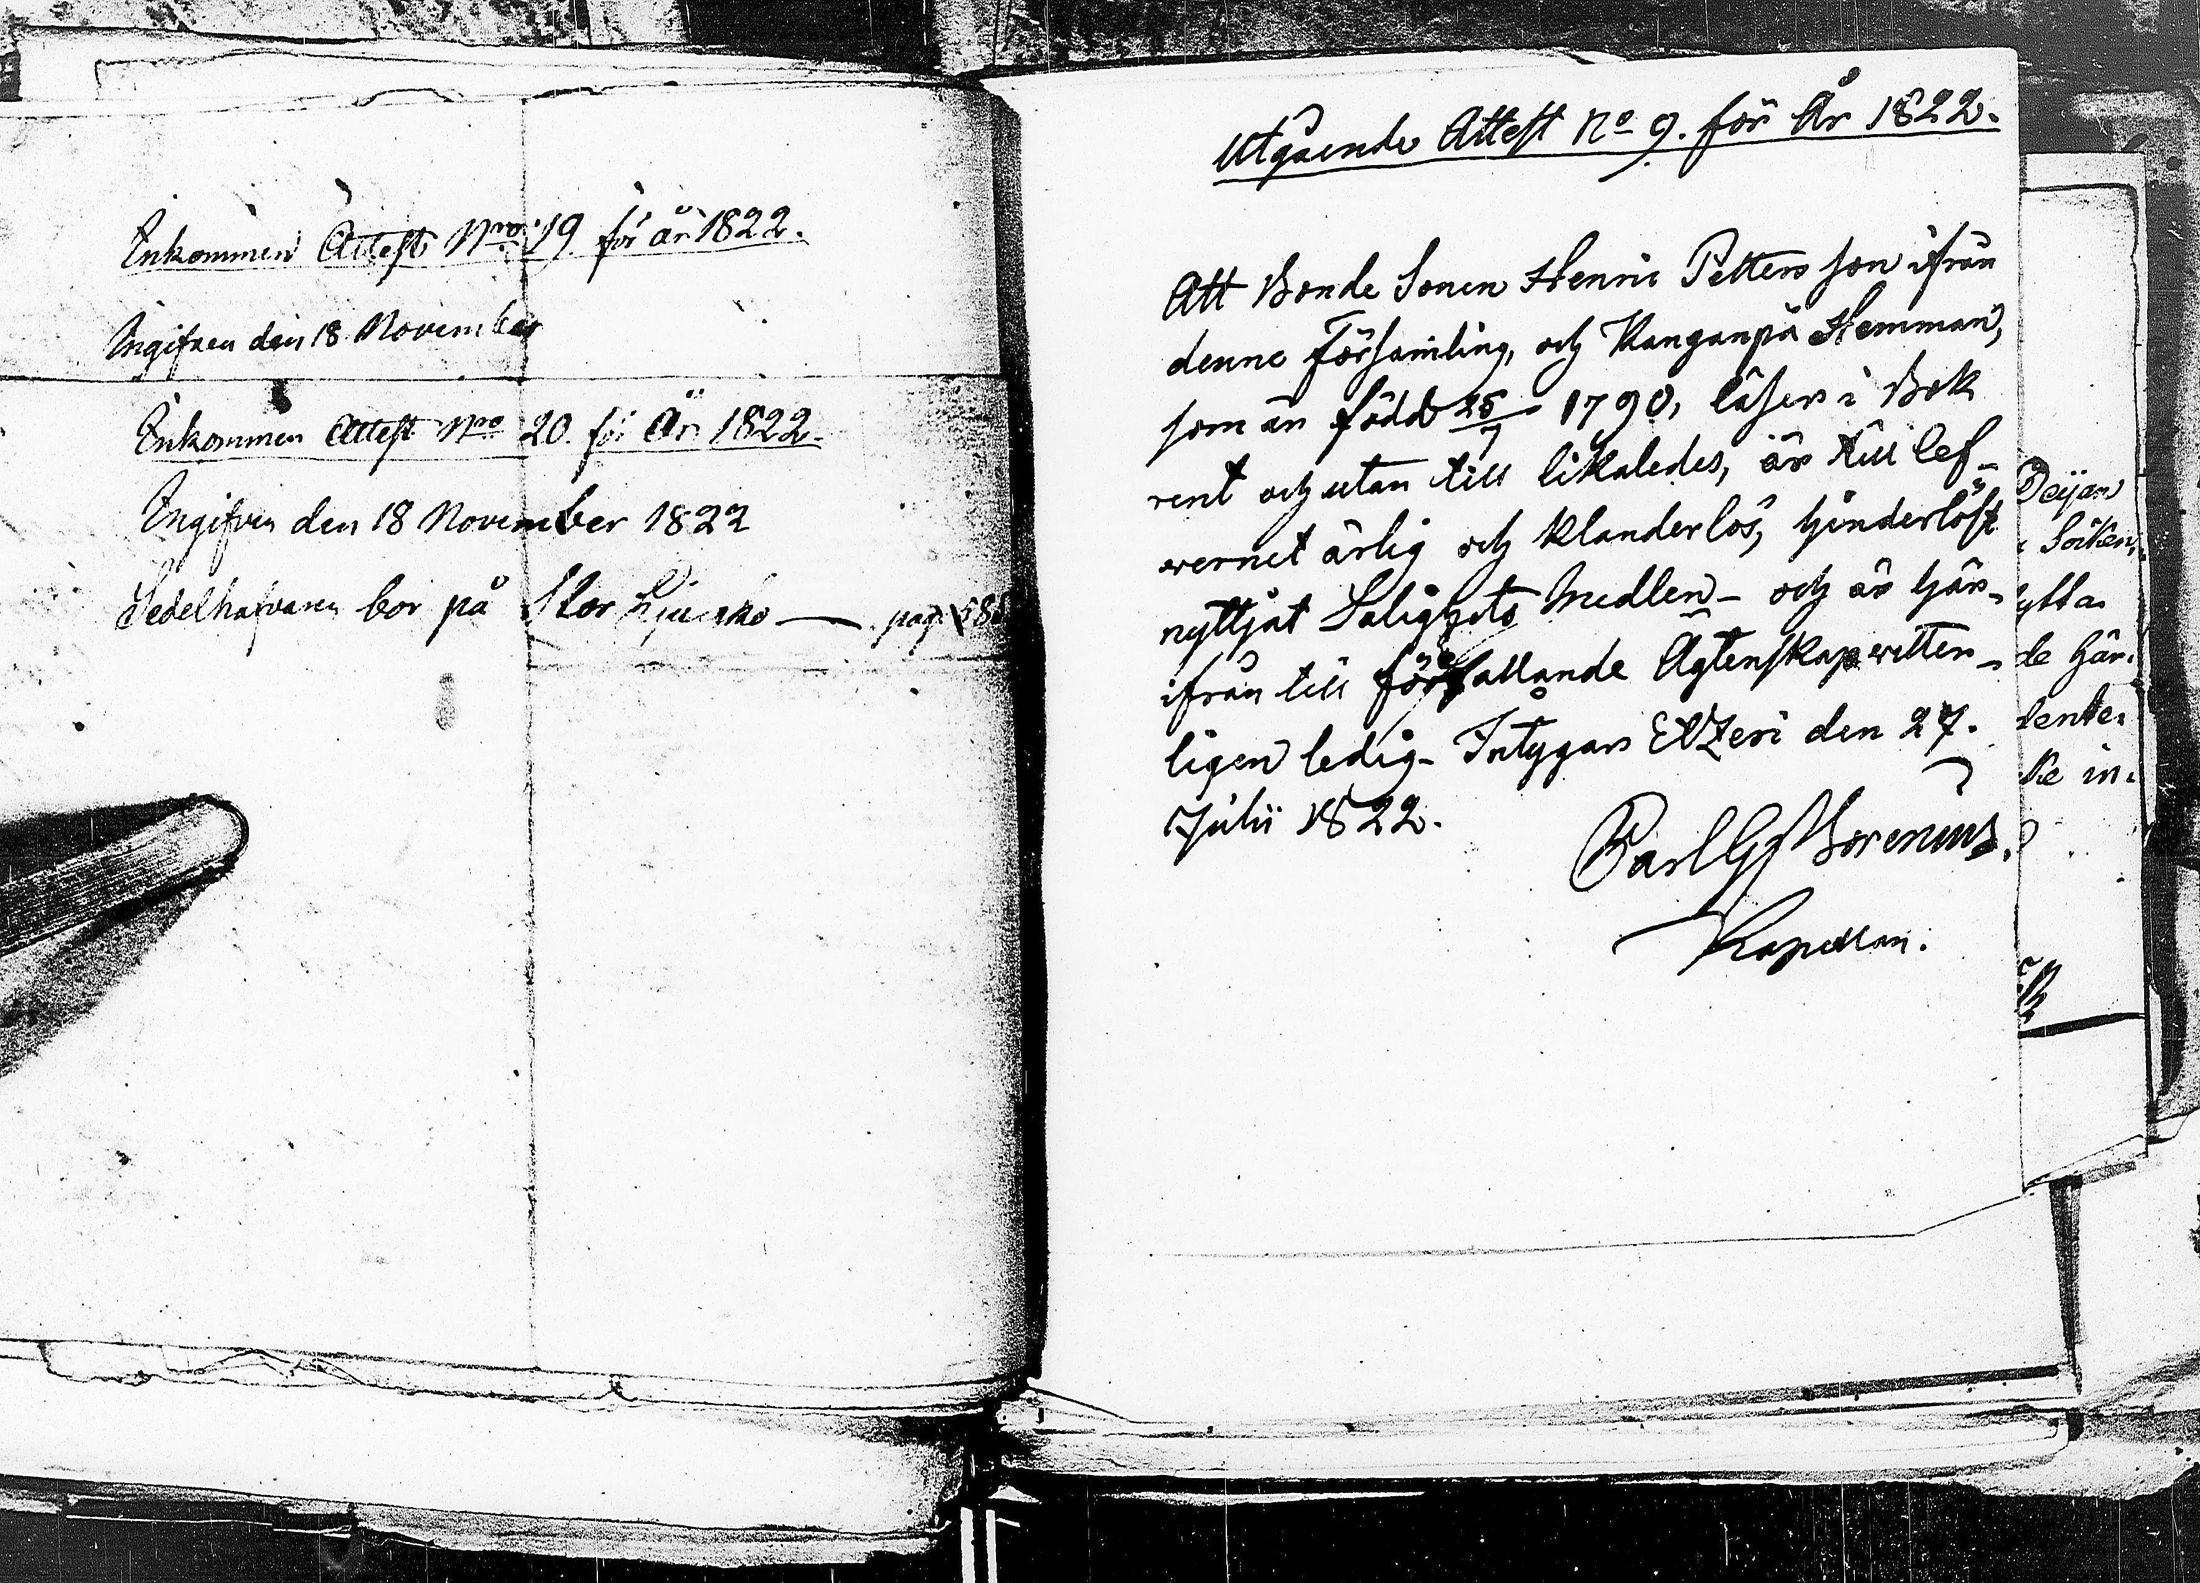 Inkommen Attest Nro 19 för år 1822.
Ingifven den 18 November
Inkommen Attest Nro 20. för År 1822.
Ingifven den 18 November 1822
Sedelhafvaren bor på Stor pag.
Utgående Attest No 9. för År 1822.
Att Bonde Sonen Henric Petters son ifrån
denne Församling, och Kanganpä Hemman,
som är född 25/7 1790, läser i Bok
rent och utan till likaledes, är till lef-
wernet ärlig och klanderlös, hinderlöst
nyttjat Salighets Medlen- och är här-
ifrån till förefallande Ägtenskap witter-
ligen ledig- Intygar EXZeri den 27.
Julii 1822.
Carl G Borenius.
Kapellan.
Deijan
Soiken,
ytta
de här.
ke in.